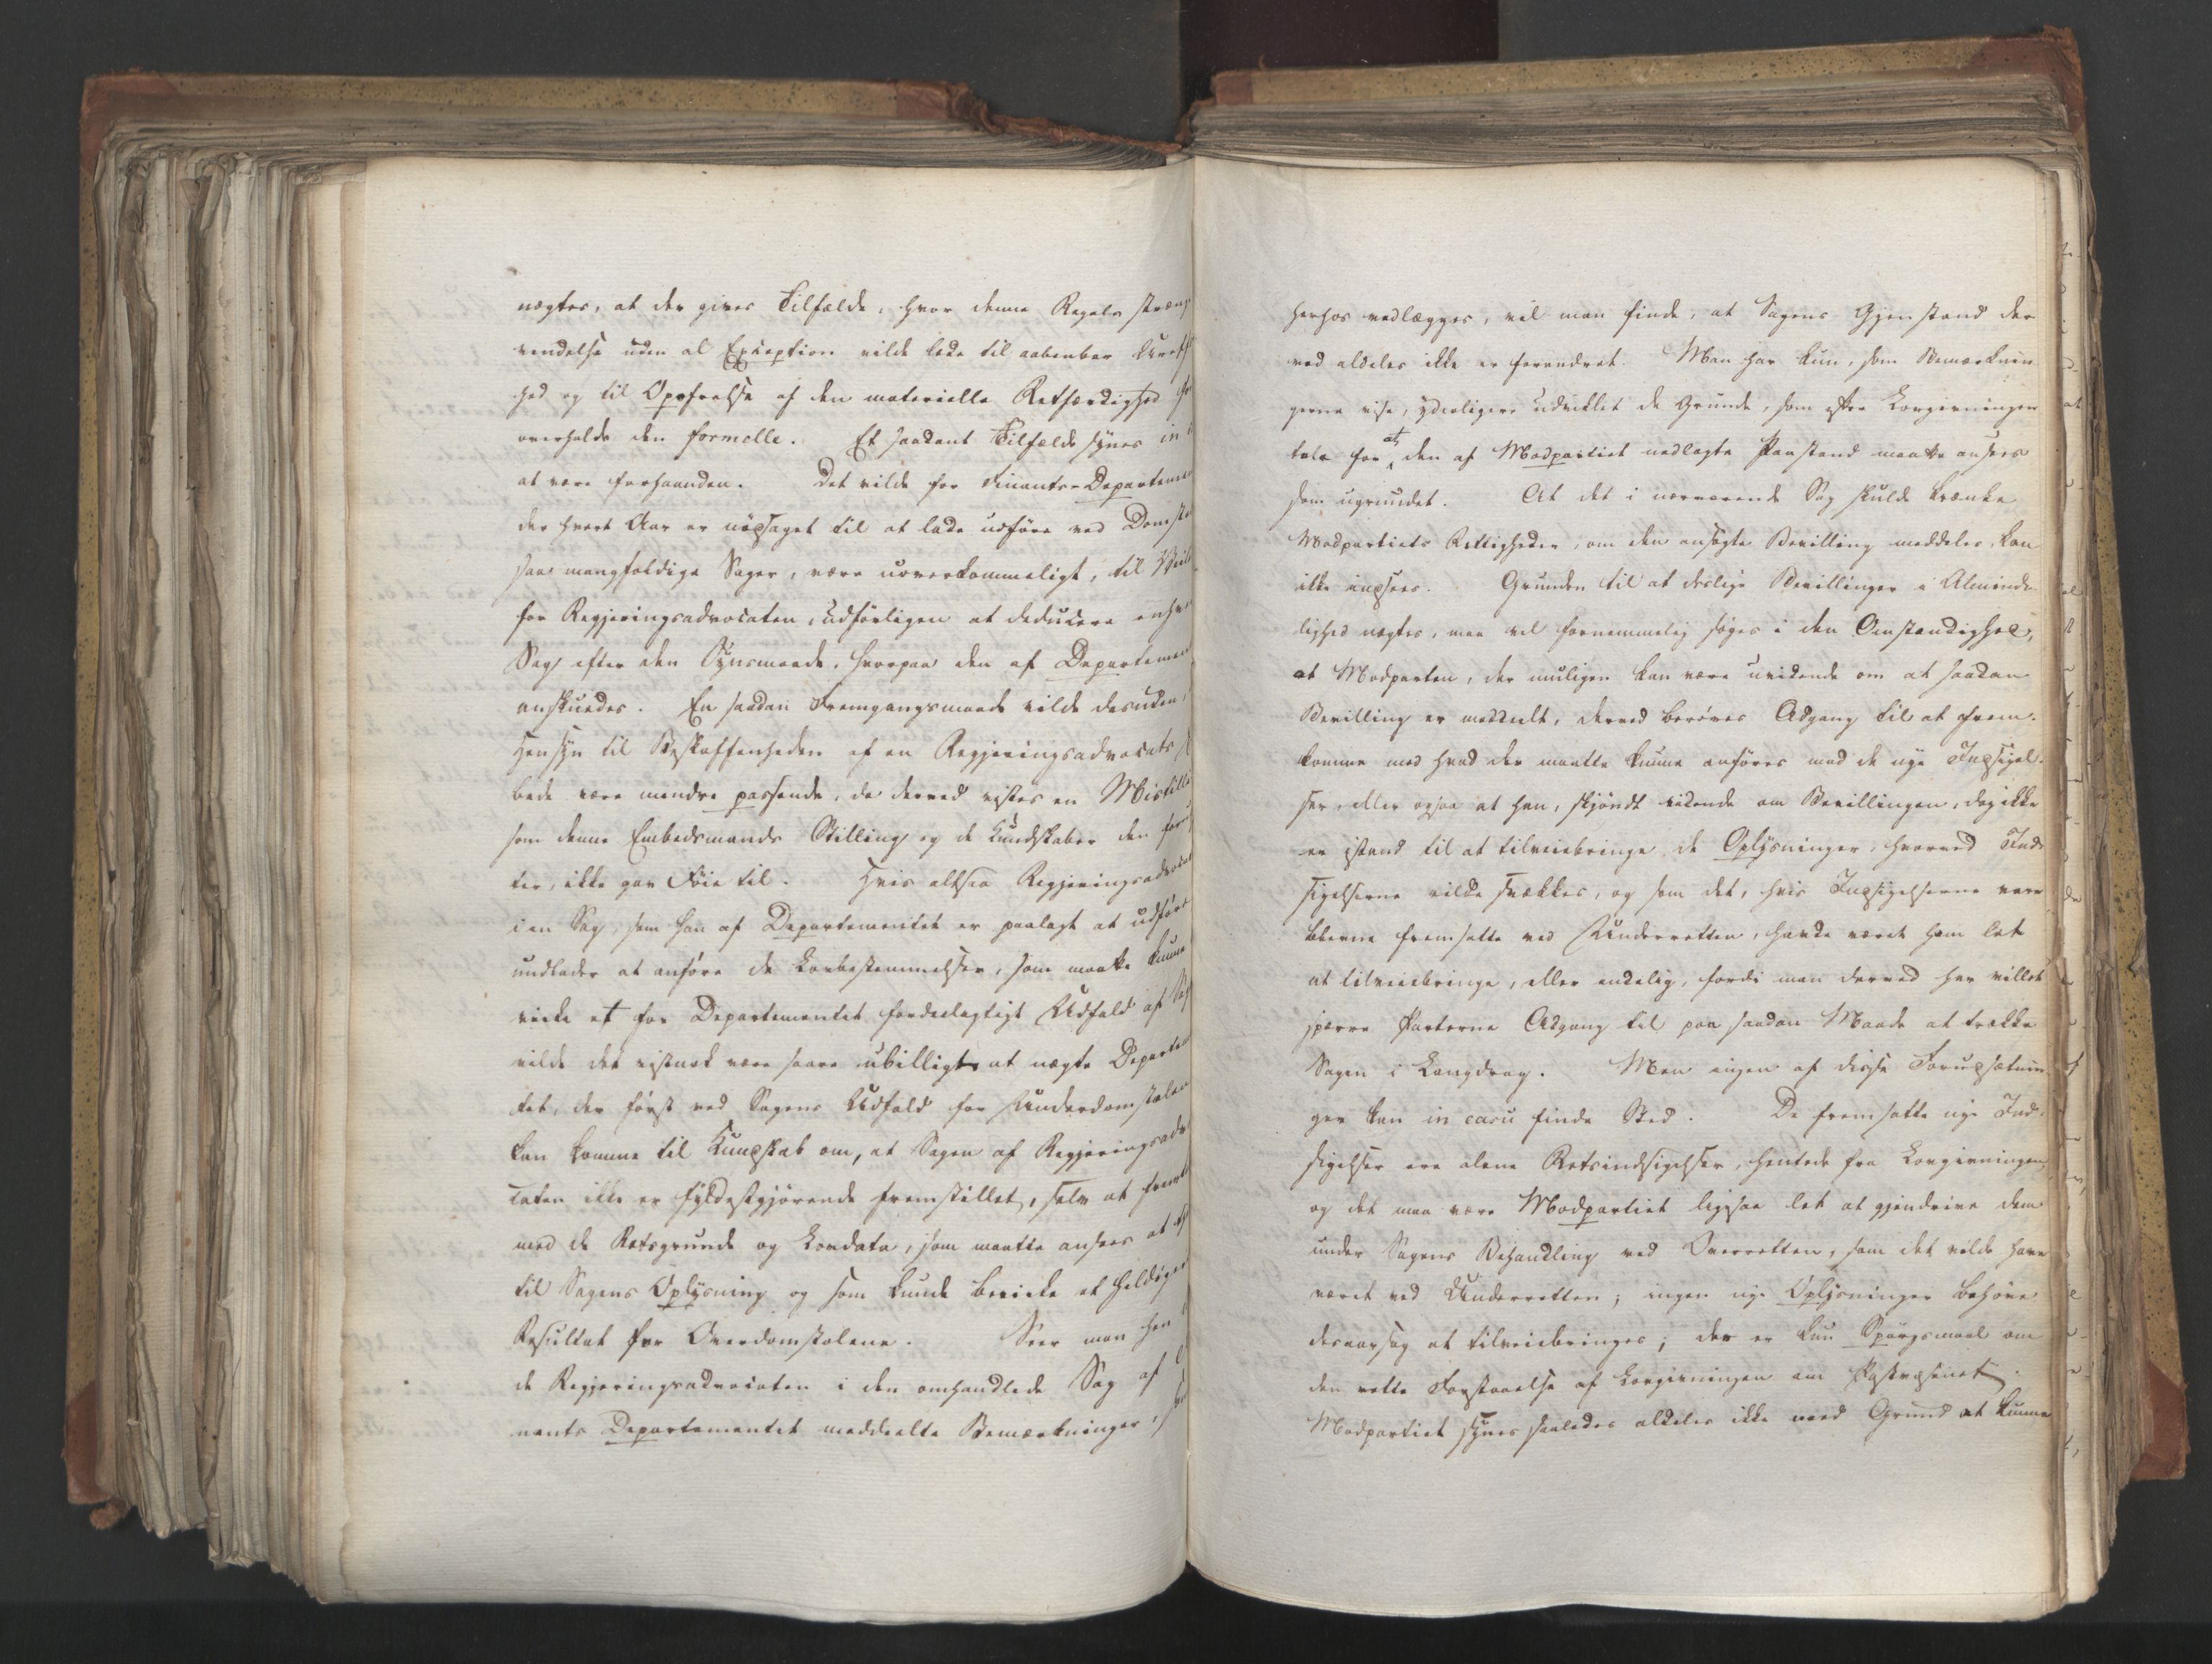 nægtes, at der gives Tilfælde, hvor denne Regels stræng
vendelse uden al Exception vilde lede til aabenbar Uret
hed og til Opofrelse af den materielle Retfærdighed
overholde den formelle. Et saadant Tilfælde synes in
at være forhaanden. Det vilde for Finants-Departemen
der hvert Aar er nødsaget til at lade udføre ved Domsto
saa mangfoldige Sager, være uoverkommeligt, til
for Regjeringsadvocaten, udførligen at deducere enhver
Sag efter den Synsmaade, hvorpaa den af Departemen
anskuedes. En saadan Fremgangsmaade vilde desuden
Hensyn til Beskaffenheden af en Regjeringsadvocats
bede være mindre passende, da derved vistes en Mistilli
som denne Embedsmands Stilling og de Kundskaber den foru
ter, ikke gav Føie til. Hvis altsaa Regjeringsadvocat
i en Sag, som han af Departementet er paalagt at udføre
undlader at anføre de Lovbestemmelser, som maatte kunne
virke et for Departementet fordeelagtigt Udfald af
vilde det vistnok være saare ubilligt at nægte Departe
tet, der først ved Sagens Udfald for Underdomstolen
kan komme til Kundskab om, at Sagen af Regjeringsadv
caten ikke er fyldestgjørende fremstillet, selv at frem
med de Retsgrunde og Lovdata, som maatte ansees at
til Sagens Oplysning og som kunde bevirke et heldiger
Resultat for Overdomstolene. Seer man hen
de Regjeringsadvocaten i den omhandlede Sag af
nants Departementet meddeelte Bemærkninger,
herhos vedlægges, vil man finde, at Sagens Gjenstand der
ved aldeles ikke er forandret. Man har kun, som Bemærknin
gerne vise, yderligere udviklet de Grunde, som efter Lovgivningen
tale for at den af Modpartiet nedlagte Paastand maatte ansees
som ugrundet. At det i nærværende Sag skulde krænke
Modpartiets Rettigheder, om den ansøgte Bevilling meddeles, kan
ikke indsees. Grunden til at deslige Bevillinger i Alminde-
lighed nægtes, maa vel fornemmelig søges i den Omstændighed,
at Modparten, der muligen kan være uvidende om at saadan
Bevilling er meddeelt, derved berøves Adgang til at frem-
komme med hvad der maatte kunne anføres mod de nye Indsigel-
ser, eller ogsaa at han, skjøndt vidende om Bevillingen, dog ikke
er istand til at tilveiebringe de Oplysninger, hvorved Ind-
sigelserne vilde svækkes, og som det, hvis Indsigelserne vare
blevne fremsatte ved Underretten, havde været ham let
at tilveiebringe, eller endelig, fordi man derved har villet
spærre Parterne Adgang til paa saadan Maade at trække
Sagen i Langdrag. Men ingen af disse Forudsætnin-
ger kan in casu finde Sted. De fremsatte nye Ind-
sigelser ere alene Retsindsigelser, hentede fra Lovgivningen,
og det maa være Modpartiet ligesaa let at gjendrive dem
under Sagens Behandling ved Overretten, som det vilde have
været ved Underretten; ingen nye Oplysninger behøve
desaarsag at tilveiebringes; der er kun Spørgsmaal om
den rette Forstaaelse af Lovgivningen om Postvæsenet.
Modpartiet synes saaledes aldeles ikke med Grund at kunne